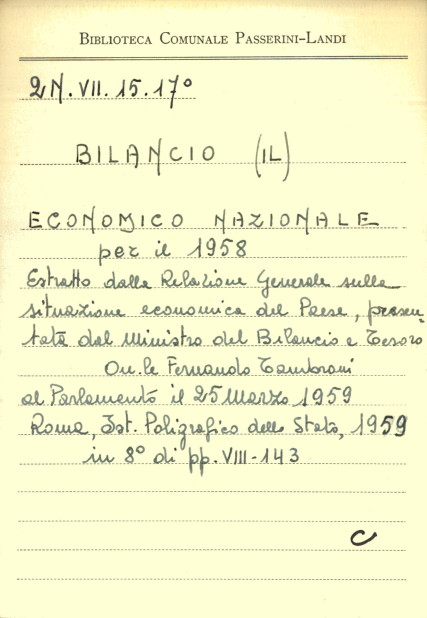 BIBLIOTECA COMUNALE PASSERINI-LANDI
2N.VII.15.17°
BILANCIO (IL)
ECONOMICO NAZIONALE
per il 1958
Estratto dalla Relazione Generale sulla
situazione economica del Paese, presen
tata dal Ministro del Bilancio e Tesoro
On.le Fernando Tambroni
al Parlamento il 25 Marzo 1959
Roma, Ist. Poligrafico dello Stato, 1959
in 8° di pp. VIII-143
C